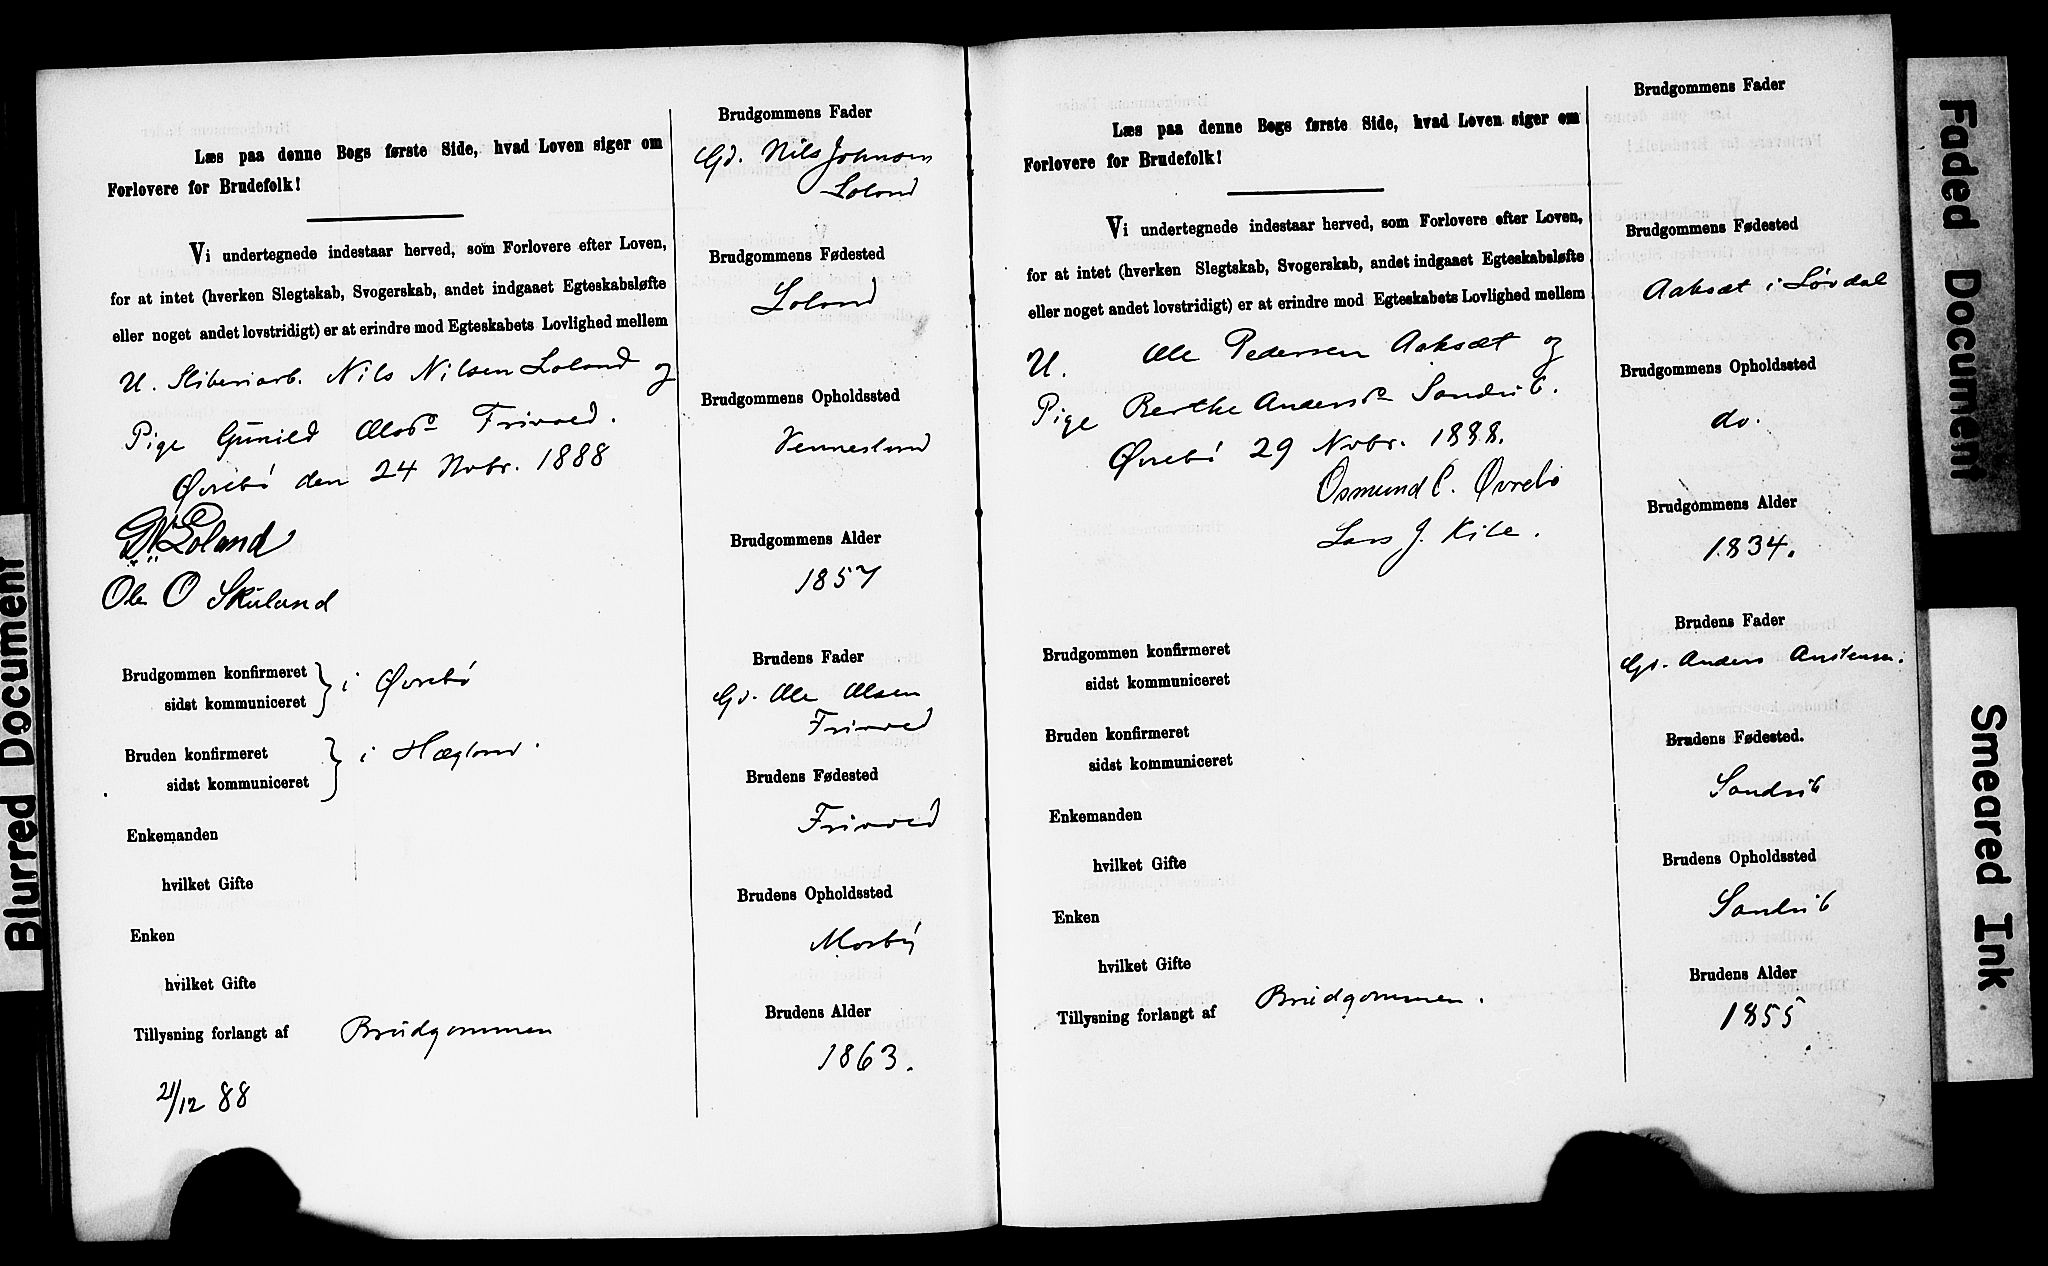 Læs paa denne Bogs første Side, hvad Loven siger om
Forlovere for Brudefolk!
Vi undertegnede indestaar herved, som Forlovere efter Loven,
for at intet (hverken Slegtskab, Svogerskab, andet indgaaet Egteskabsløfte
eller noget andet lovstridigt) er at erindre mod Egteskabets Lovlighed mellem
U. Sliberiarb. Nils Nilsen Loland og
Pige Gunild Olesd. Frivold.
Øvrebø den 24 Novbr. 1888
Loland
Ole O Skuland
Brudgommen konfirmeret
sidst kommuniceret } i Øvrebø
Bruden konfirmeret
sidst kommuniceret } i Hægland.
Enkemanden
hvilket Gifte
Enken
hvilket Gifte
Tillysning forlangt af Brudgommen
21/12 88
Brudgommens Fader
Gd. Nils Johnsen
Loland
Brudgommens Fødested
Loland
Brudgommens Opholdssted
Vennesland
Brudgommens Alder
1857
Brudens Fader
Gd. Ole Olsen
Frivold
Brudens Fødested
Frivold
Brudens Opholdssted
Mosby
Brudens Alder
1863.
Læs paa denne Bogs første Side, hvad Loven siger om
Forlovere for Brudefolk!
Vi undertegnede indestaar herved, som Forlovere efter Loven,
for at intet (hverken Slegtskab, Svogerskab, andet indgaaet Egteskabsløfte
eller noget andet lovstridigt) er at erindre mod Egteskabets Lovlighed mellem
U. Ole Pedersen Aaksæt og
Pige Berthe Andersd. Sandrib.
Øvrebø 29 Novbr. 1888.
Osmund C. Øvrebø
Lars J. Kile.
Brudgommen konfirmeret
sidst kommuniceret
Bruden konfirmeret
sidst kommuniceret
Enkemanden
hvilket Gifte
Enken
hvilket Gifte
Tillysning forlangt af Brudgommen.
Brudgommens Fader
Brudgommens Fødested
Aaksæt i Løvdal
Brudgommens Opholdssted
do.
Brudgommens Alder
1834.
Brudens Fader
Gd. Anders Anstensen.
Brudens Fødested.
Sandrib
Brudens Opholdssted
Sandrib
Brudens Alder
1855
Blurred Document
Faded Document
Smeared Ink